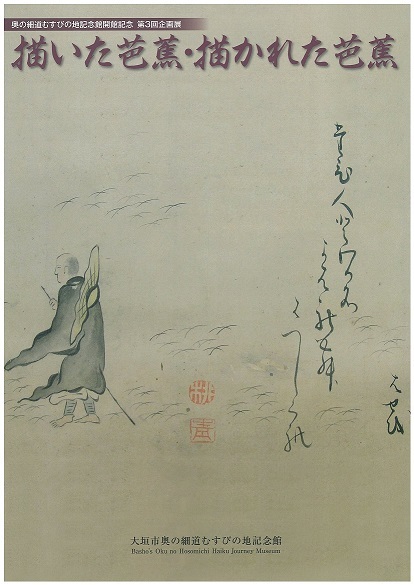 奥の細道むすびの地記念館開館記念 第3回企画展
描いた芭蕉・描かれた芭蕉
はつしくれ
はせを
桃
青
大垣市奥の細道むすびの地記念館
Basho's Oku no Hosomichi Haiku Journey Museum